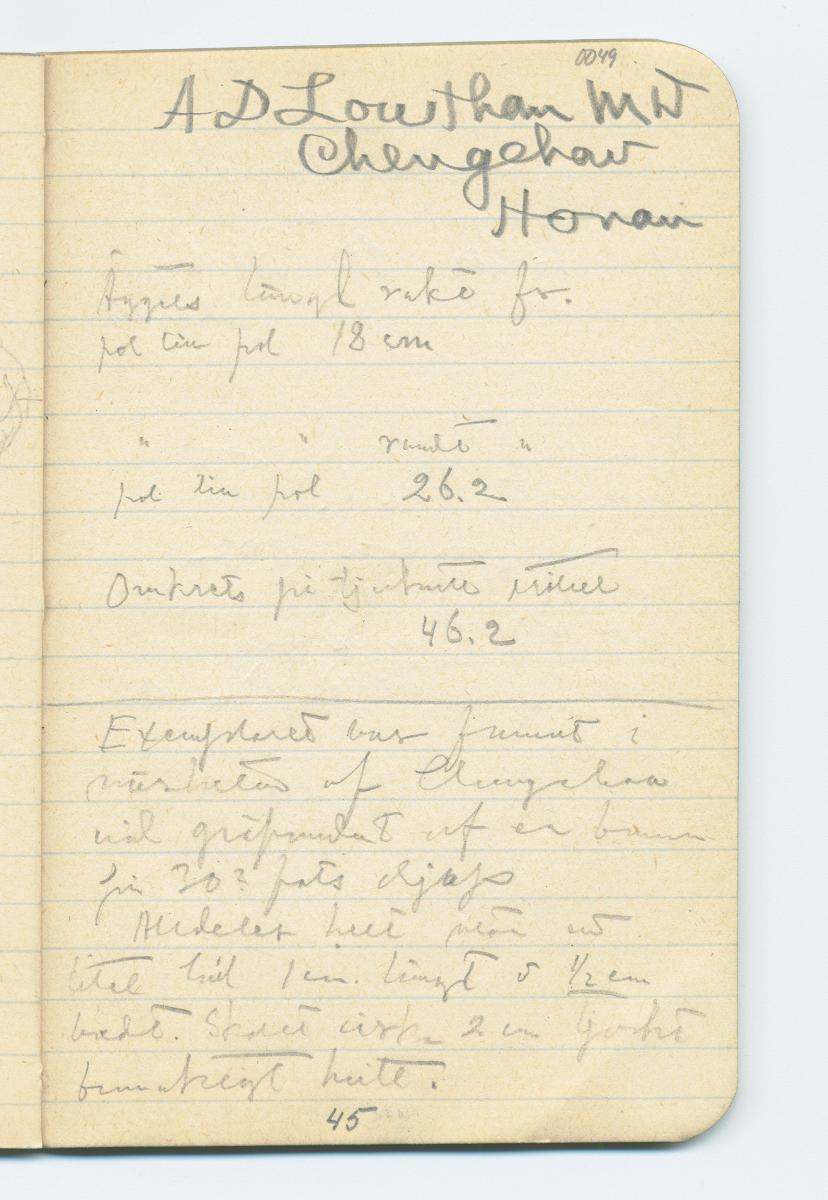 0049
A D Louthan MD
Chengchow
Honan
Äggets längd rakt fr.
pol till pol 18 cm
" " rundt "
pol till pol 26.2
Omkrets på tjockaste stället
46.2
Exemplaret var funnet i
närheten af Chengchow
vid gräfvandet af en brunn
på 30? fots djup
Alldeles helt utan ett
litet hål 1 cm. långt o 1/2 cm
bredt. Skalet cirk. 2 m tjockt
brunaktigt hvitt.
45